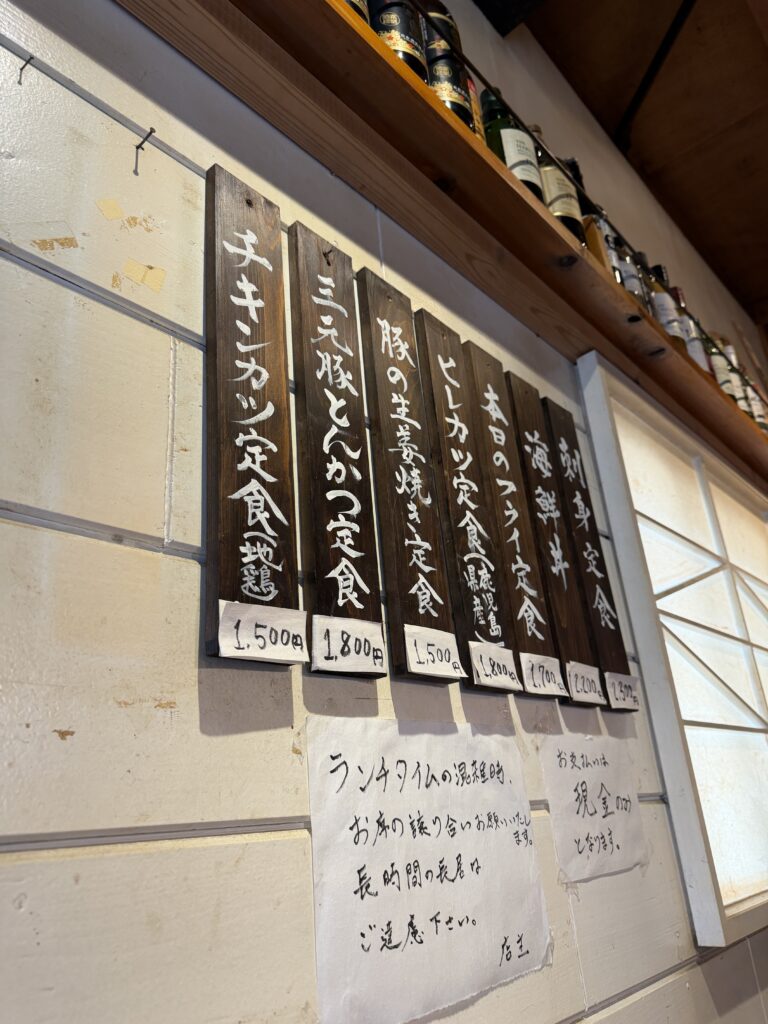 チキンカツ定食(地鶏)
1,500円
三元豚とんかつ定食
1,800円
豚の生姜焼き定食
1,500円
ヒレカツ定食(鹿児島県産)
1,800円
本日のフライ定食
1,700円
海鮮丼
2,200円
刺身定食
2,300円
ランチタイムの混雑時、
お席の譲り合いお願いいたします。
長時間の長居は
ご遠慮下さい。
店主
お支払いは
現金のみ
となります。